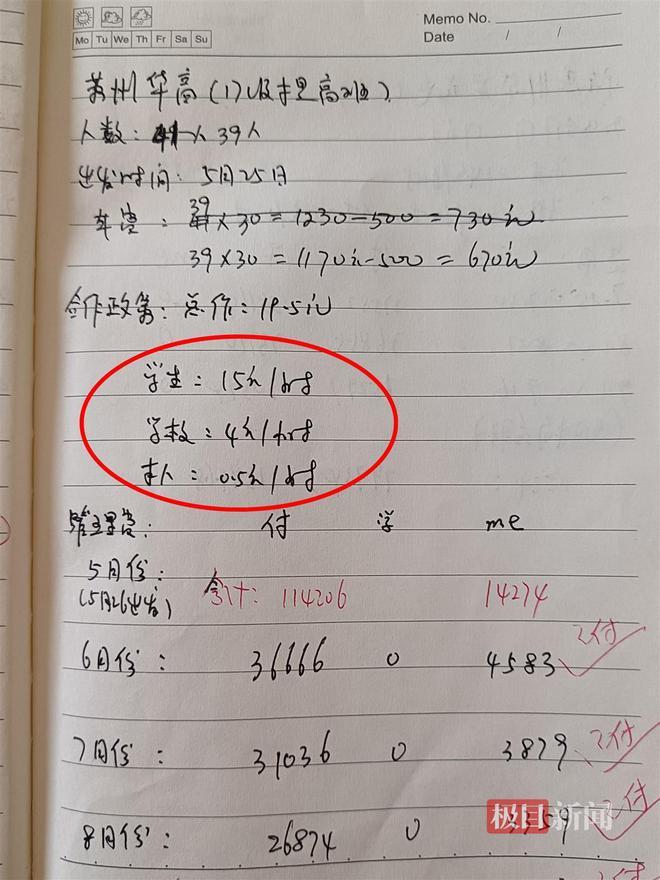 Memo No.
Mo Tu We Th Fr Sa Su
Date / /
苏州华高(17级提高班)
人数: 39人
出发时间: 5月25日
车费: 39×30=1230-500=730元
39×30=1170元-500=670元
合作政策: 总价: 19.5元
学生: 15元/时
学校: 4元/时
本人: 0.5元/时
管理费: 付 学 me
5月份:
(5月26出发) 合计: 114206 14274
6月份: 36666 0 4583 已付
7月份: 31036 0 3879 已付
8月份: 26874 0 3359 已付
极目新闻